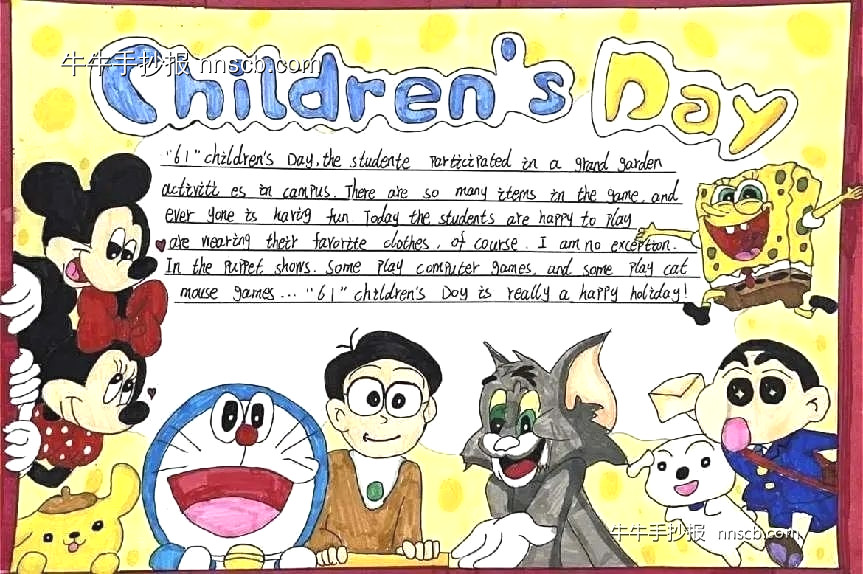 牛牛手抄报 nnscb.com
Children's Day
"61" children's Day, the studente participated in a grand garden
activiti es in campus. There are so many items in the game, and
ever yone is having fun. Today the students are happy to play
are wearing their favorite clothes, of course. I am no exception.
In the puppet shows. Some play computer games, and some play cat
mouse games... "61" children's Day is really a happy holiday!
牛牛手抄报 nnscb.com